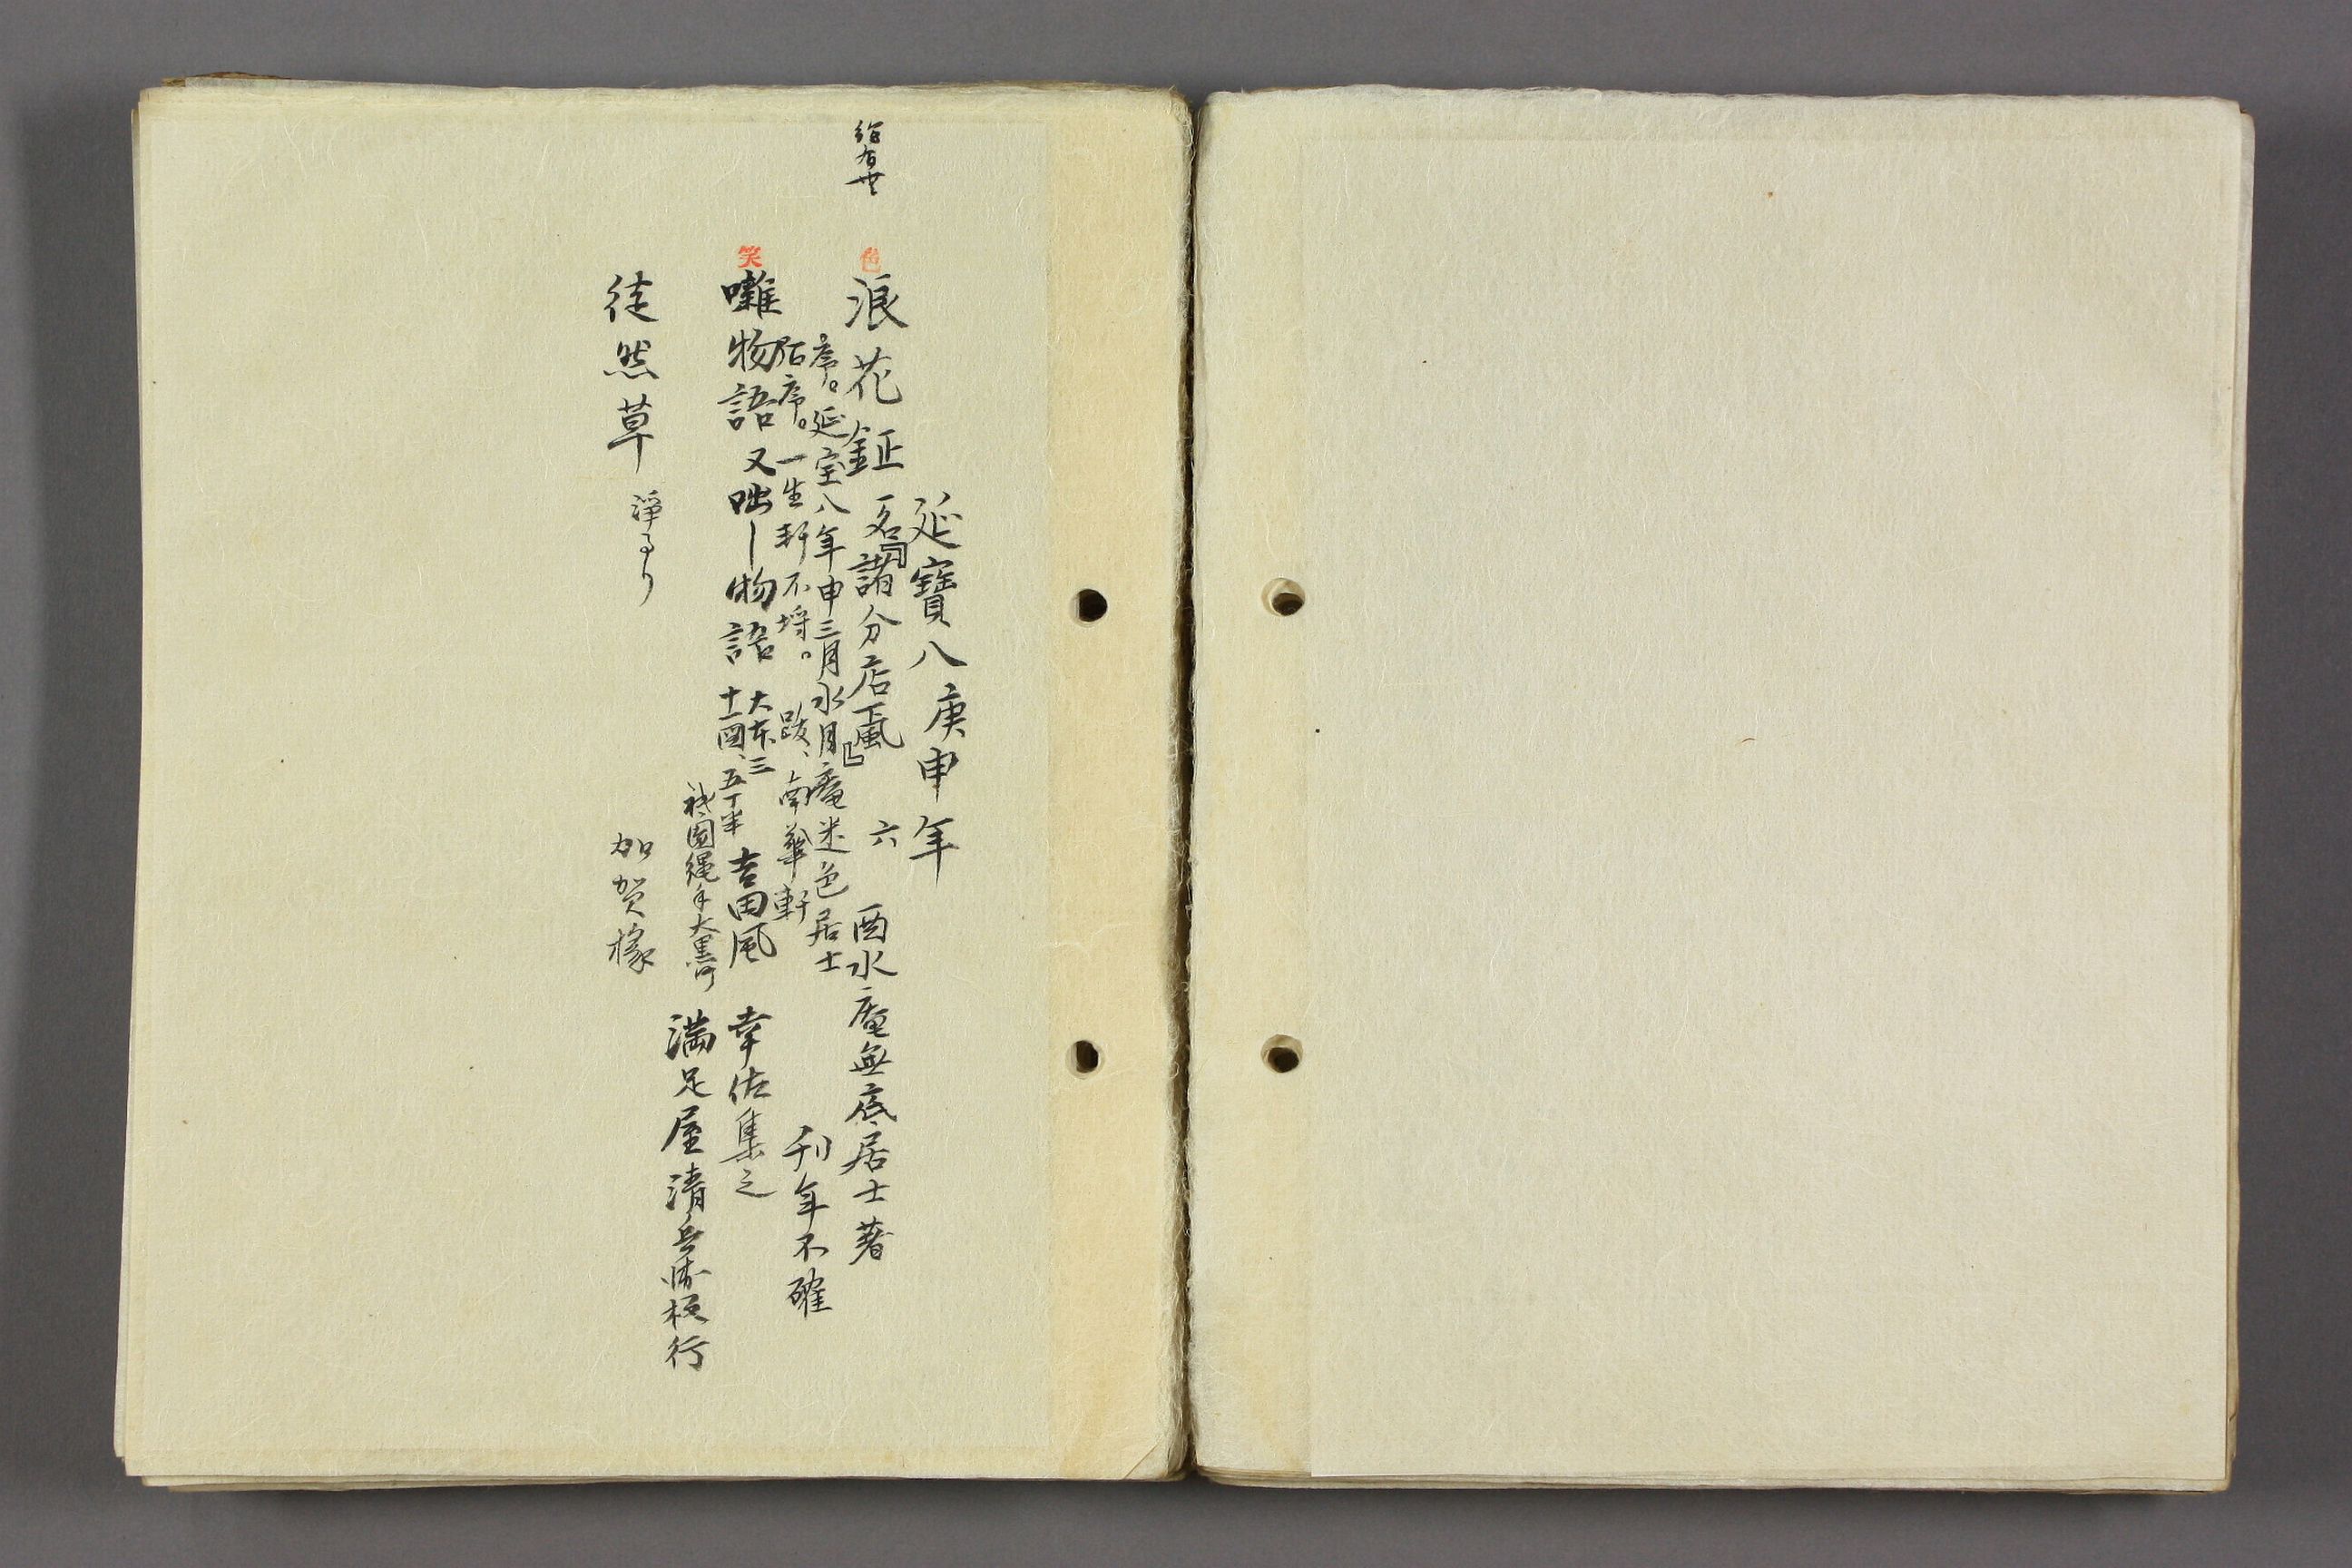 延寳八庚申年
色
浪花鉦 一名「諸分店颪」 六 酉水庵無底居士著
序。延宝八年申三月水月庵迷色居士
后序。一生軒不埒。 跋、南華軒 刊年不確
笑
囃物語 又咄し物語 大本、三 十一図、五丁半 吉田風 幸佐集之
祇園縄手大黒町 満足屋清兵衛板行
徒然草 浄るり 加賀掾